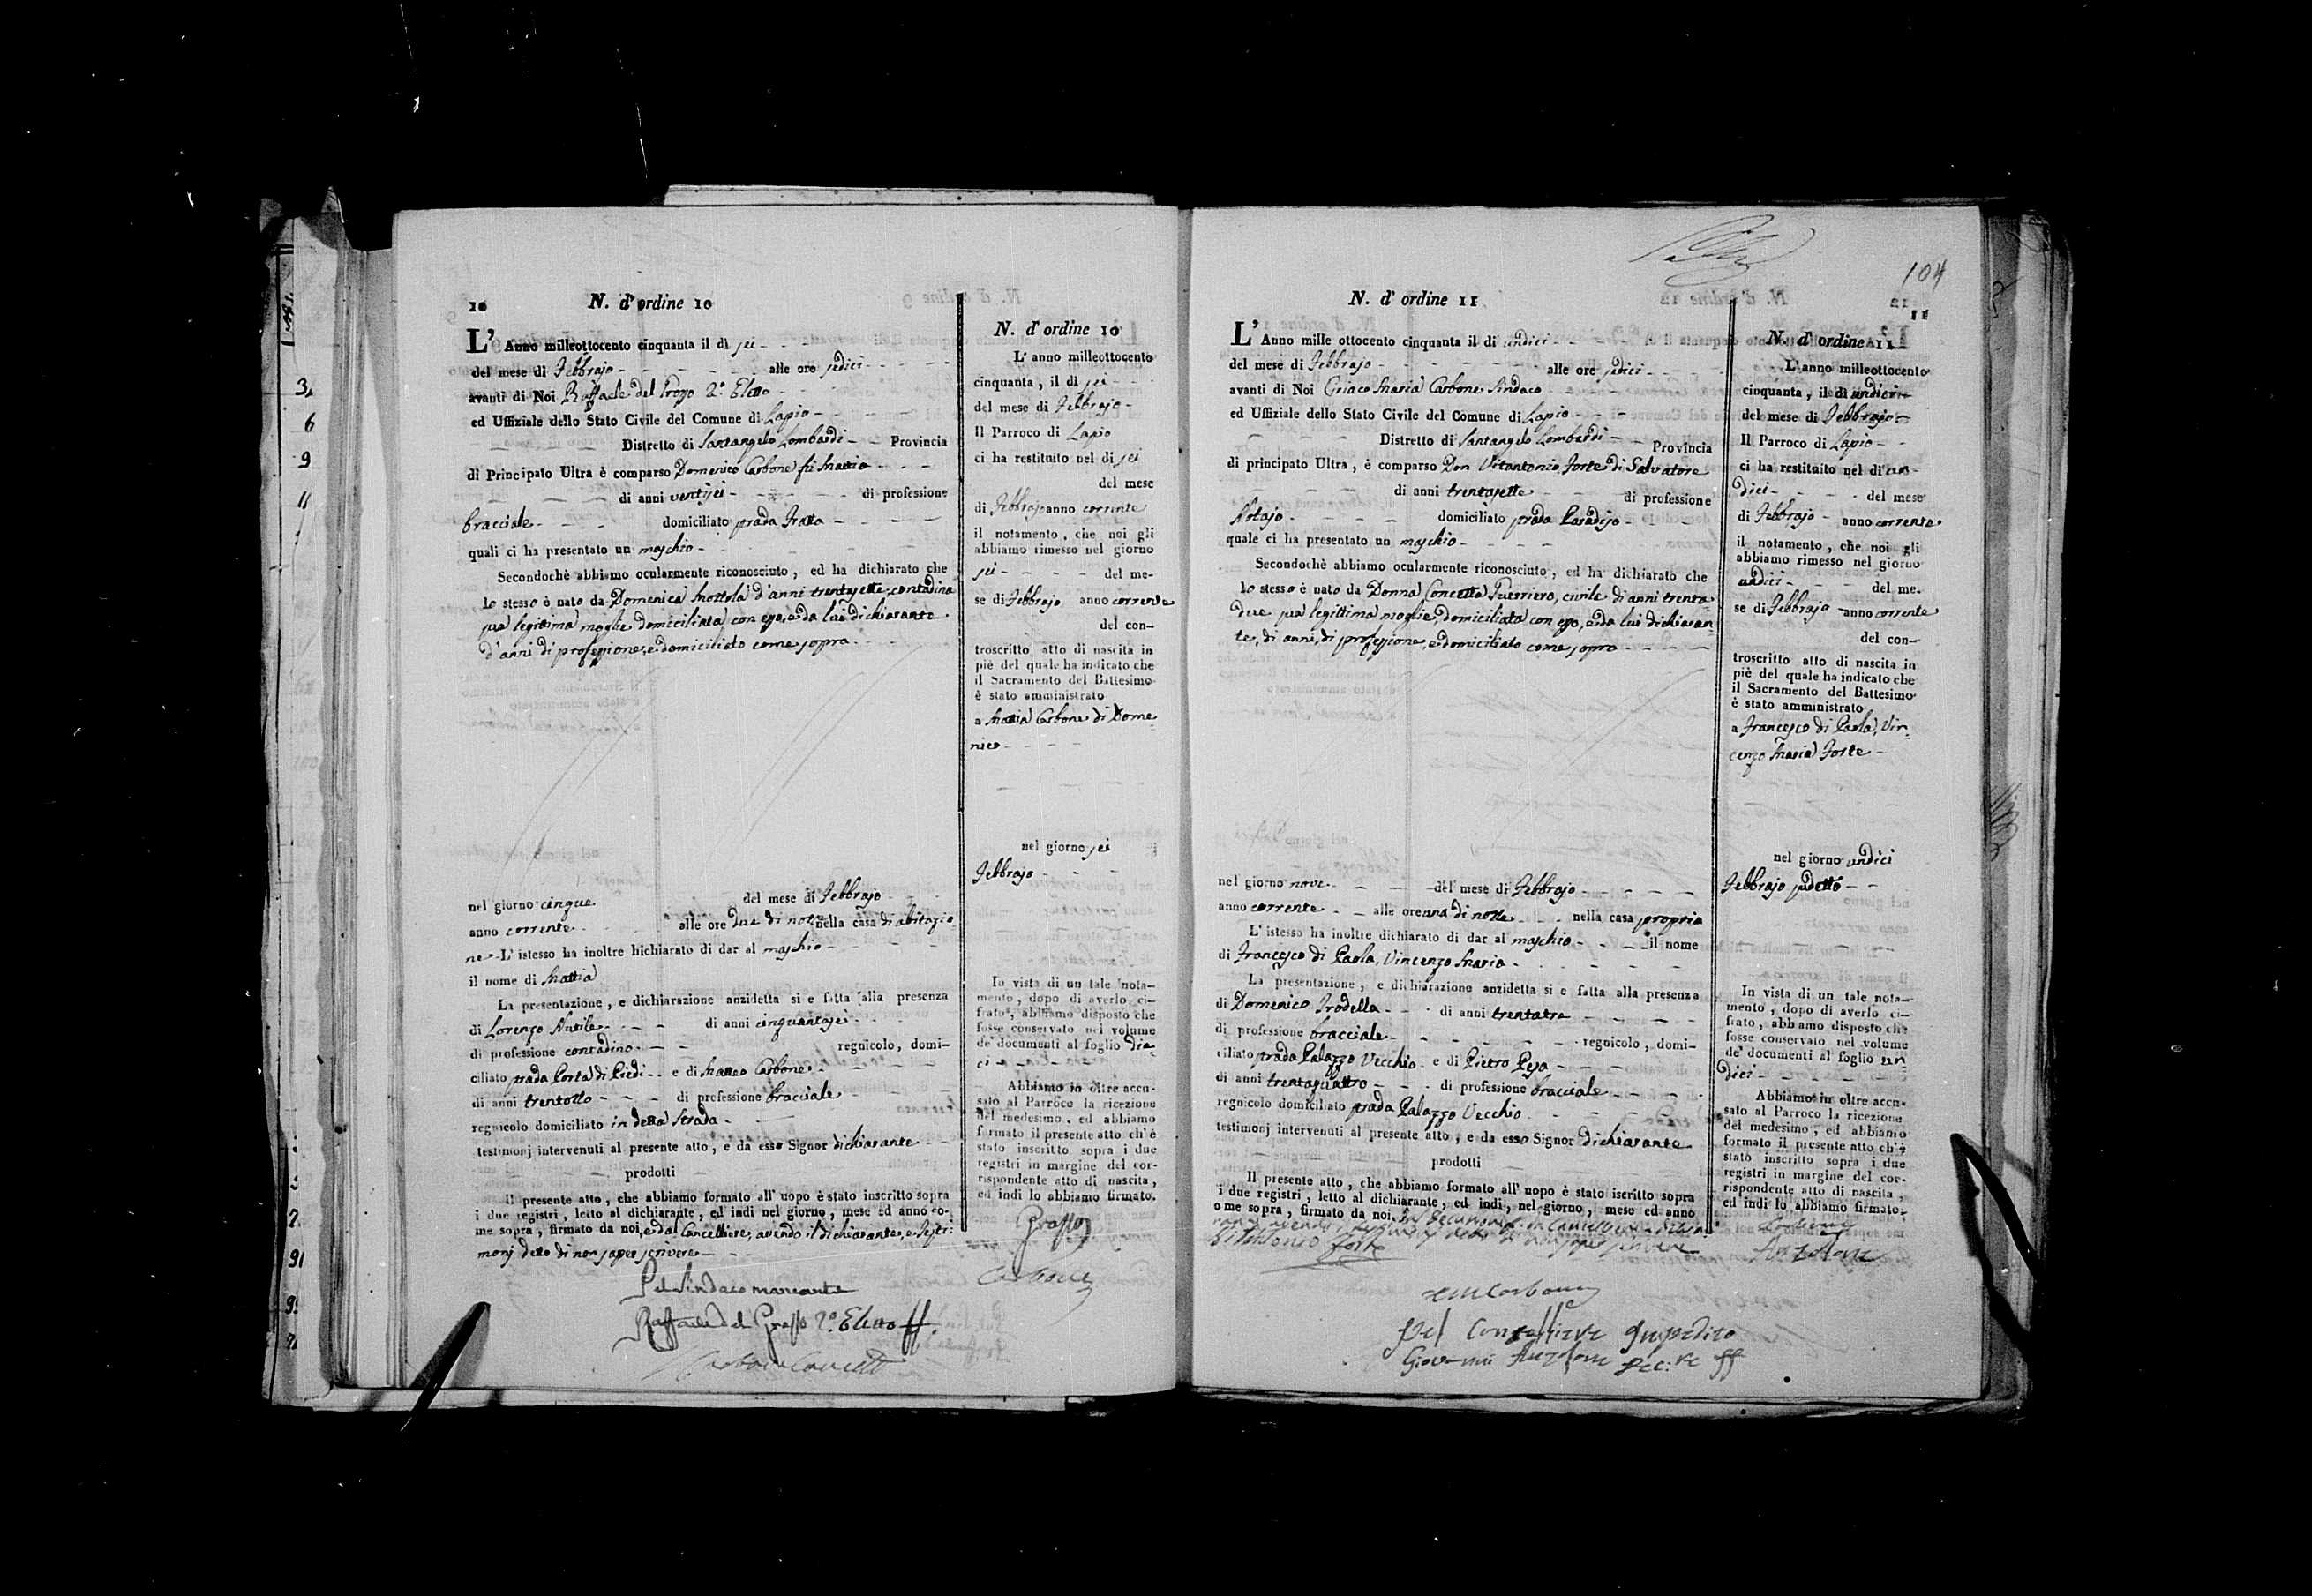 10 N. d' ordine 10
L' Anno milleottocento cinquanta il dì sei
del mese di Febbrajo alle ore sedici
avanti di Noi Raffaele del Grosso 2.° Eletto
ed Uffiziale dello Stato Civile del Comune di Lapio
Distretto di Santangelo Lombardi Provincia
di Principato Ultra è comparso Domenico Carbone fu Mattia
di anni ventisei di professione
bracciale domiciliato strada Fratta
quali ci ha presentato un maschio
Secondochè abbiamo ocularmente riconosciuto, ed ha dichiarato che
lo stesso è nato da Domenica Mottola d'anni trentasette, contadina
sua legittima moglie domiciliata con esso, e da lui dichiarante
d'anni di professione, e domiciliato come sopra
nel giorno cinque del mese di Febbrajo
anno corrente alle ore due di notte nella casa di abitazio
ne L' istesso ha inoltre hichiarato di dar al maschio
il nome di Mattia
La presentazione, e dichiarazione anzidetta si e fatta alla presenza
di Lorenzo di anni cinquantasei
di professione contadino regnicolo, domi-
ciliato strada Porta di Piedi e di Matteo Carbone
di anni trentotto di professione bracciale
regnicolo domiciliato in detta Strada
testimonj intervenuti al presente atto, e da esso Signor dichiarante
prodotti
Il presente atto, che abbiamo formato all' uopo è stato inscritto sopra
i due registri, letto al dichiarante, ed indi nel giorno, mese ed anno co-
me sopra, firmato da noi, e dal Cancelliere, avendo il dichiarante, e Testi
monj detto di non saper scrivere
Pel Sindaco mancante
Raffaele del Grosso 2.° Eletto ff.
N. d' ordine 10
L' anno milleottocento
cinquanta, il dì sei
del mese di Febbrajo
Il Parroco di Lapio
ci ha restituito nel dì sei
del mese
di Febbrajo anno corrente
il notamento, che noi gli
abbiamo rimesso nel giorno
sei del me-
se di Febbrajo anno corrente
del con-
troscritto atto di nascita in
piè del quale ha indicato che
il Sacramento del Battesimo
è stato amministrato
a Mattia Carbone di Dome
nico
nel giorno sei
Febbrajo
In vista di un tale nota-
mento, dopo di averlo ci-
frato, abbiamo disposto che
fosse conservato nel volume
de' documenti al foglio die
ci
Abbiamo in oltre accu-
sato al Parroco la ricezione
del medesimo, ed abbiamo
formato il presente atto ch' è
stato inscritto sopra i due
registri in margine del cor-
rispondente atto di nascita,
ed indi lo abbiamo firmato.
Grosso
Carbone
104
11
N. d' ordine 11
L' Anno mille ottocento cinquanta il dì undici
del mese di Febbrajo alle ore sedici
avanti di Noi Ciriaco Maria Carbone Sindaco
ed Uffiziale dello Stato Civile del Comune di Lapio
Distretto di Santangelo Lombardi Provincia
di principato Ultra, è comparso Don Vitantonio Forte di Salvatore
di anni trentasette di professione
Notajo domiciliato strada Paradiso
quale ci ha presentato un maschio
Secondochè abbiamo ocularmente riconosciuto, ed ha dichiarato che
lo stesso è nato da Donna Concetta Guerriero, civile di anni trenta
due sua legittima moglie, domiciliata con esso, e da lui dichiaran
te, di anni, di professione, e domiciliato come sopra
nel giorno nove del mese di Febbrajo
anno corrente alle ore una di notte nella casa propria
L' istesso ha inoltre dichiarato di dar al maschio il nome
di Francesco di Paola, Vincenzo Maria
La presentazione, e dichiarazione anzidetta si e fatta alla presenza
di Domenico Trodella di anni trentatre
di professione bracciale regnicolo, domi-
ciliato strada Palazzo Vecchio e di Pietro Pepa
di anni trentaquattro di professione bracciale
regnicolo domiciliato strada Palazzo Vecchio
testimonj intervenuti al presente atto, e da esso Signor dichiarante
prodotti
Il presente atto, che abbiamo formato all' uopo è stato iscritto sopra
i due registri, letto al dichiarante, ed indi, nel giorno, mese ed anno
ome sopra, firmato da noi
Vitantonio Forte
Pel Cancelliere Impedito
Giovanni ff
N. d' ordine 11
L' anno milleottocento
cinquanta, il dì undici
del mese di Febbrajo
Il Parroco di Lapio
ci ha restituito nel dì un-
dici del mese
di Febbrajo anno corrente
il notamento, che noi gli
abbiamo rimesso nel giorno
undici del me-
se di Febbrajo anno corrente
del con-
troscritto atto di nascita in
piè del quale ha indicato che
il Sacramento del Battesimo
è stato amministrato
a Francesco di Paola, Vin-
cenzo Maria Forte
nel giorno undici
Febbrajo sudetto
In vista di un tale nota-
mento, dopo di averlo ci-
frato, abbiamo disposto che
fosse conservato nel volume
de' documenti al foglio un
dici
Abbiamo in oltre accu-
sato al Parroco la ricezione
del medesimo, ed abbiamo
formato il presente atto ch' è
stato inscritto sopra i due
registri in margine del cor-
rispondente atto di nascita,
ed indi lo abbiamo firmato.
Carbone